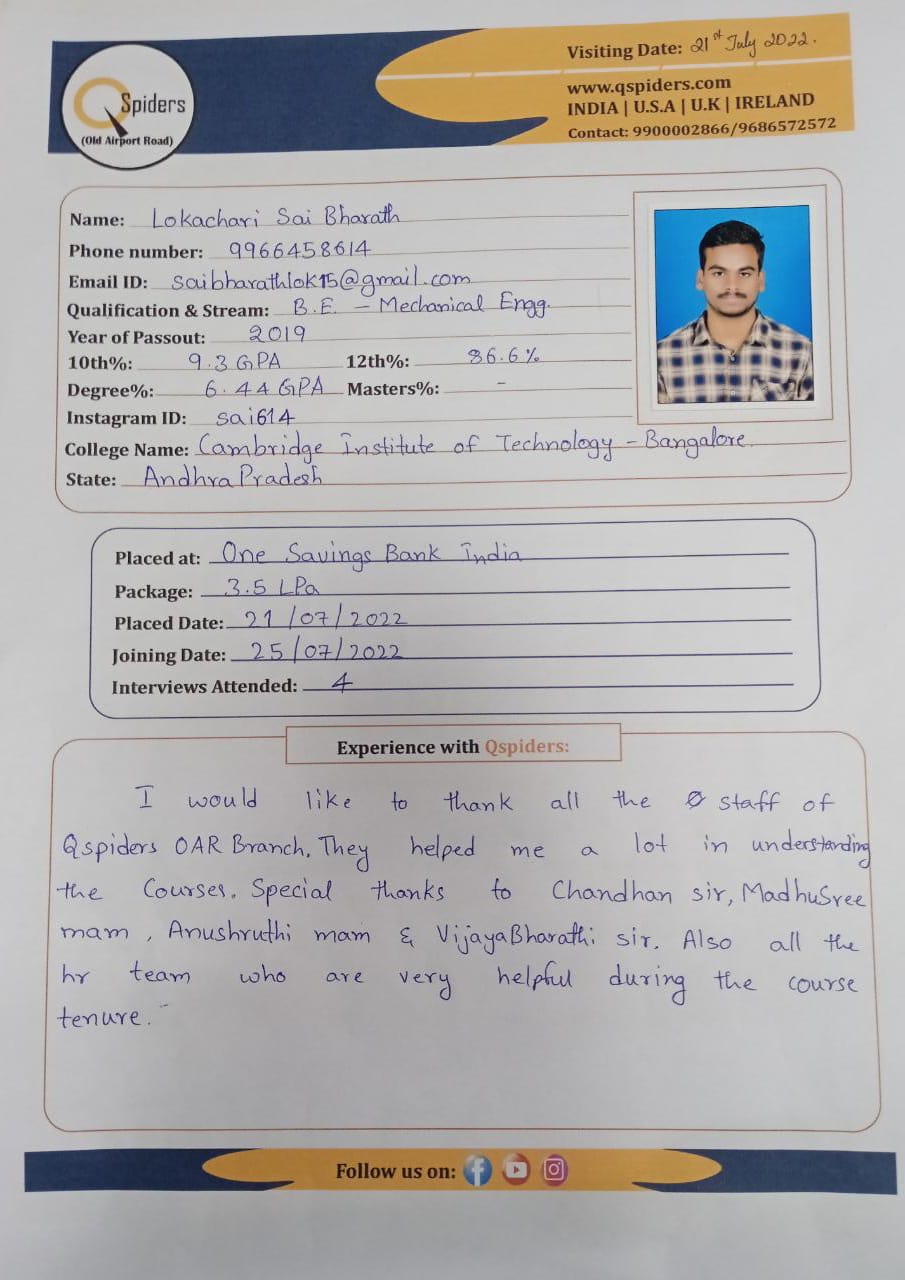 Visiting Date: 21st July 2022.
QSpiders
(Old Airport Road)
www.qspiders.com
INDIA | U.S.A | U.K | IRELAND
Contact: 9900002866/9686572572
Name: Lokachari Sai Bharath
Phone number: 9966458614
Email ID: saibharathlok15@gmail.com
Qualification & Stream: B.E. - Mechanical Engg.
Year of Passout: 2019
10th%: 9.3 GPA 12th%: 86.6%
Degree%: 6.44 GPA Masters%: -
Instagram ID: sai614
College Name: Cambridge Institute of Technology - Bangalore.
State: Andhra Pradesh
Placed at: One Savings Bank India
Package: 3.5 LPa
Placed Date: 21/07/2022
Joining Date: 25/07/2022
Interviews Attended: 4
Experience with Qspiders:
I would like to thank all the staff of
Qspiders OAR Branch. They helped me a lot in understanding
the Courses. Special thanks to Chandhan sir, MadhuSree
mam, Anushruthi mam & VijayaBharathi sir. Also all the
hr team who are very helpful during the course
tenure.
Follow us on: